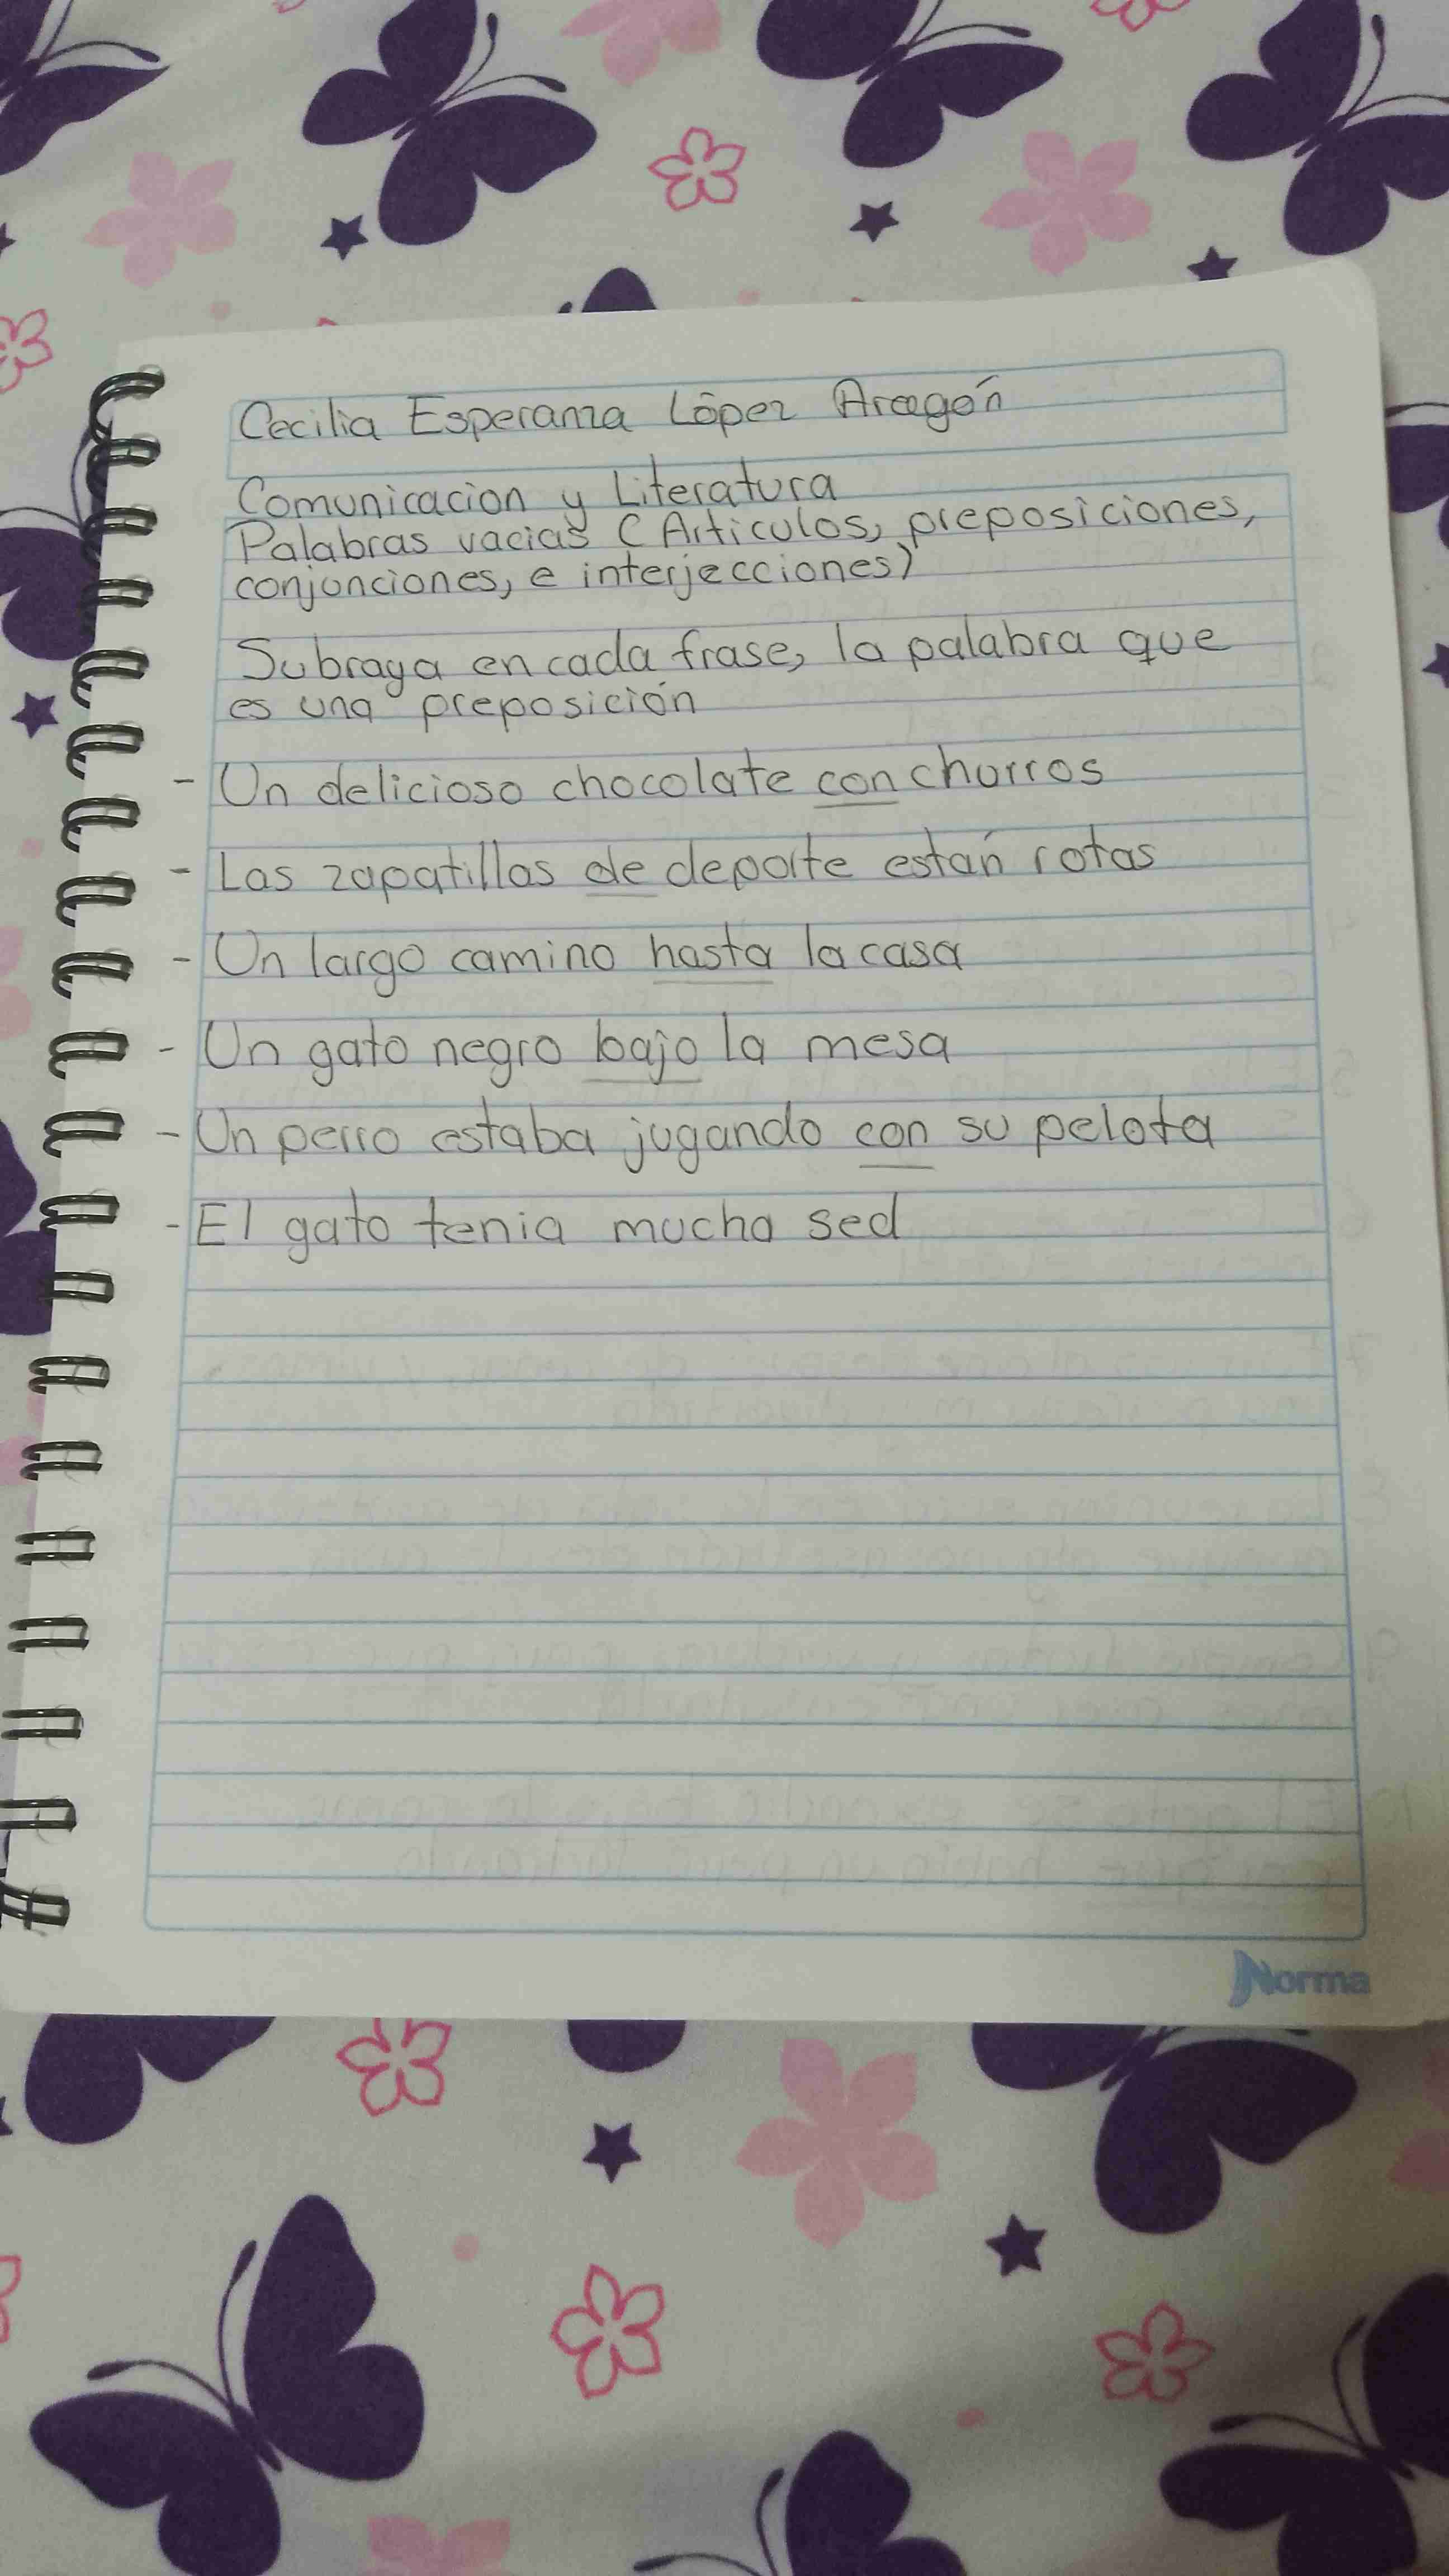 Cecilia Esperanza López Aragón
Comunicacion y Literatura
Palabras vacias (Articulos, preposiciones,
conjunciones, e interjecciones)
Subraya en cada frase, la palabra que
es una preposición
- Un delicioso chocolate con churros
- Las zapatillas de deporte están rotas
- Un largo camino hasta la casa
- Un gato negro bajo la mesa
- Un perro estaba jugando con su pelota
- El gato tenia mucha sed
Norma